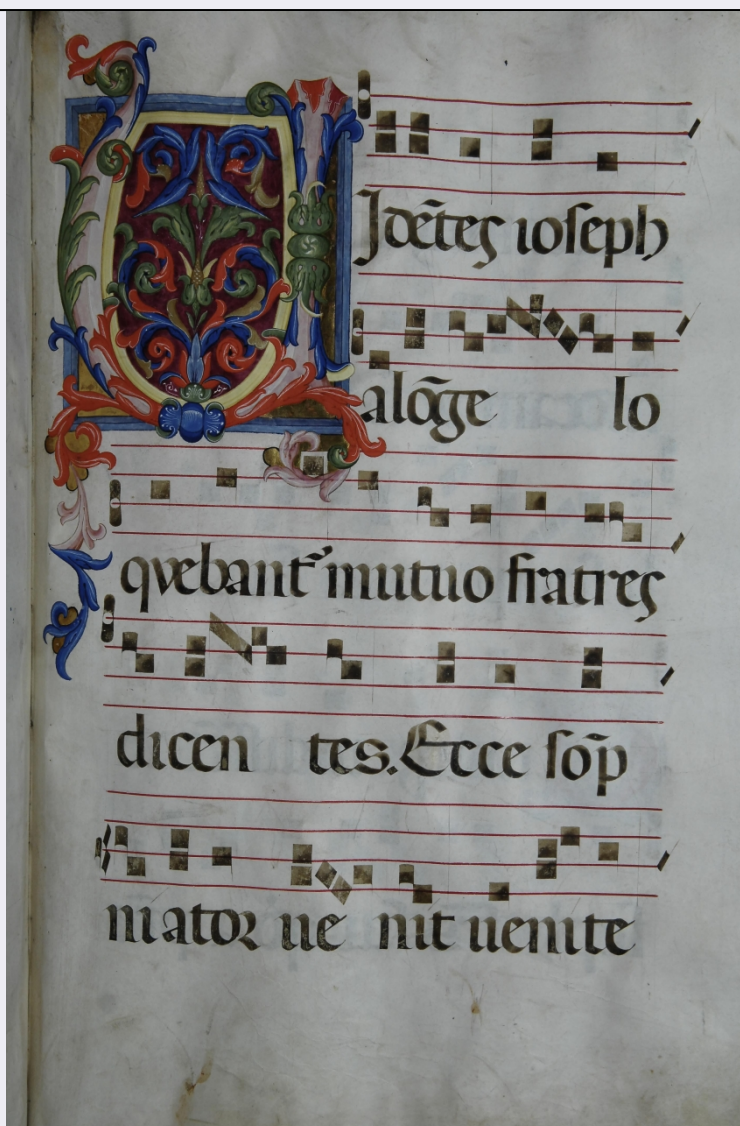 VIdētes ioseph
alōge lo
quebant᷑ mutuo fratres
dicen tes. Ecce sōp
niator ue nit uenite